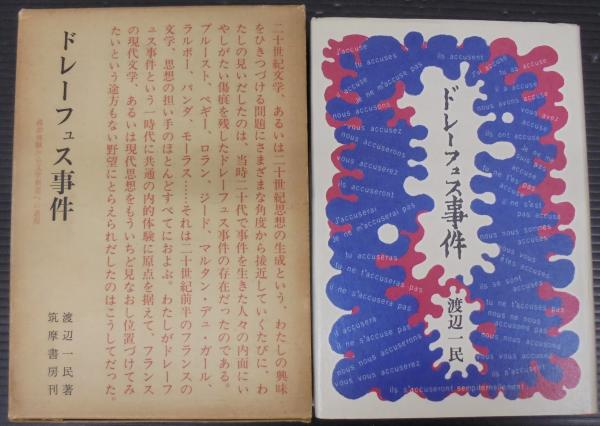 二十世紀文学、あるいは二十世紀思想の生成という、わたしの興味
をひきつづける問題にさまざまな角度から接近していくたびに、わ
たしの見いだしたのは、当時二十代で事件を生きた人々の内面にい
やしがたい傷痕を残したドレーフュス事件の存在だったのである。
プルースト、ペギー、ロラン、ジード、マルタン・デュ・ガール、
ラルボー、バンダ、モーラス……それは二十世紀前半のフランスの
文学、思想の担い手のほとんどすべてにおよぶ。わたしがドレーフ
ュス事件という一時代に共通の内的体験に原点を据えて、フランス
の現代文学、あるいは現代思想をもういちど見なおし位置づけてみ
たいという途方もない野望にとらえられだしたのはこうしてだった。
ドレーフュス事件
政治体験から文学創造への道程
渡辺一民著
筑摩書房刊
j'accuse
tu accuses
je ne m'accuse pas
nous accusons
vous accusez
nous accuserons
vous accuserez
ils accuseront
j'accuserai
je ne m'accuserai pas
tu accuseras
tu ne t'accuseras pas
il ne s'accusera pas
il accusera
il ne s'accuse pas
nous nous accuserons
vous vous accuserez
ils accusent
tu as accusé
il a accusé
nous avons accusé
ils ont accusé
nous nous sommes
ils se sont
je ne m'accuserai pas
tu ne t'accuseras pas
il ne s'accusera pas
nous nous accuserons
vous vous accuserez
ils s'accuseront sempiternellement
ドレーフュス事件
渡辺一民